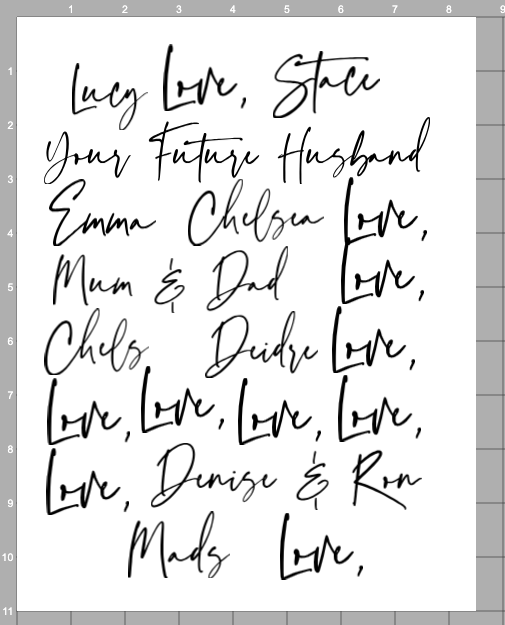 1 2 3 4 5 6 7 8 9
Lucy Love, Stace
Your Future Husband
Emma Chelsea Love,
Mum & Dad Love,
Chels Deidre Love,
Love, Love, Love, Love,
Love, Denise & Ron
Mads Love,
1
2
3
4
5
6
7
8
9
10
11